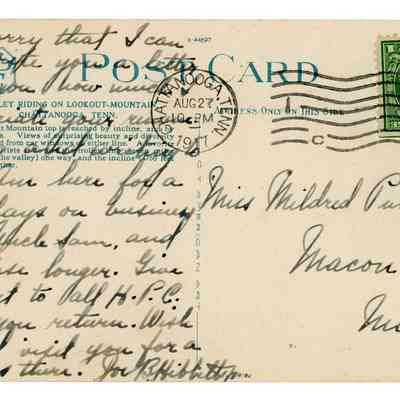 orry that I can
te you a lette
you how muc
POST CARD
A-44697
LEY RIDING ON LOOKOUT-MOUNTAIN
CHATTANOOGA, TENN.
t Mountain top is reached by incline, and by
Views of surprising beauty and diversity
d from car windows on either line. A favorite
the valley) one way, and the incline
feet
CHATTANOOGA, TENN
AUG 27
10 PM
1917
ADDRESS ONLY ON THIS SIDE
1
C
m here for a
days on business
ncle Sam, and
se longer. Give
t to all H.P.C.
you return. Wish
visit you for a
s there. Joe B. Hibbitts, Jr.
Miss Mildred Pu
Macon